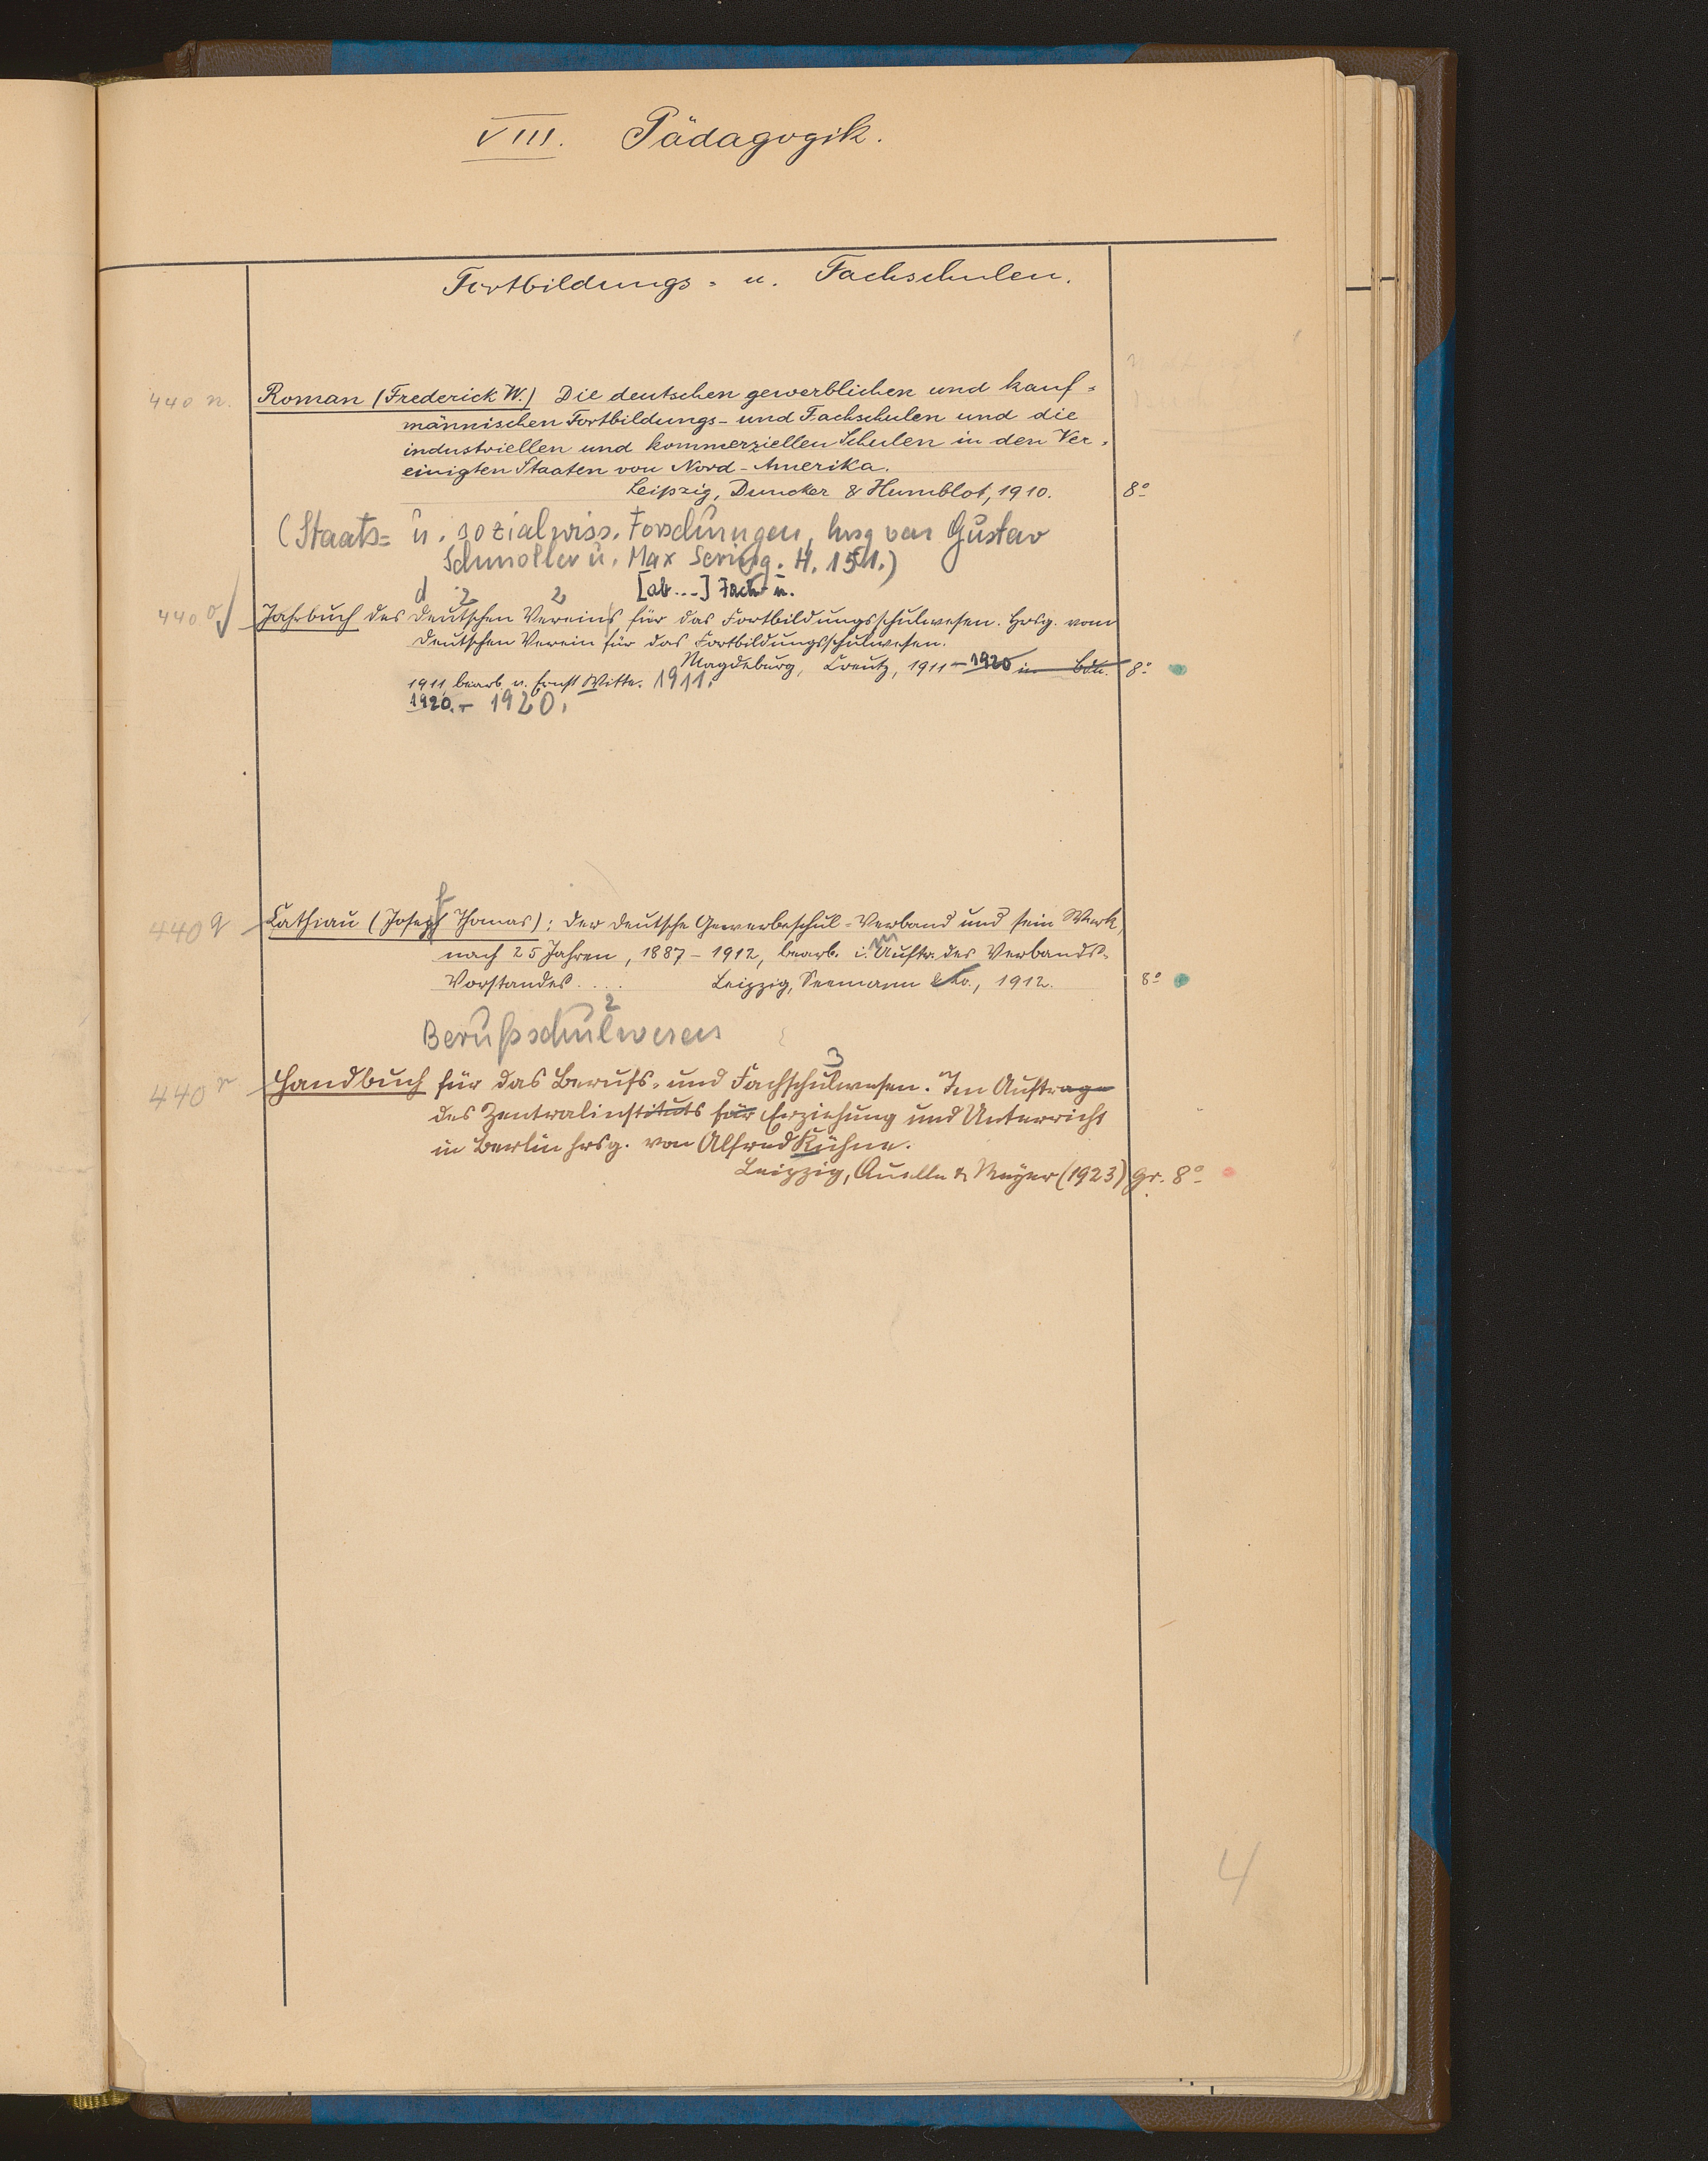 VIII. Pädagogik.
Fortbildungs- u. Fachschulen.
440 n. Roman (Frederick W.) Die deutschen gewerblichen und kauf-
männischen Fortbildungs- und Fachschulen und die
industriellen und kommerziellen Schulen in den Ver-
einigten Staaten von Nord-Amerika.
Leipzig, Duncker & Humblot, 1910. 8°
(Staats- u. sozialwiss. Forschungen, hrsg von Gustav
Schmoller u. Max Sering. H. 151.)
d 2 2 [ab...] Fach- u.
440 o Jahrbuch des deutschen Vereins für das Fortbildungsschulwesen. Hrsg. vom
deutschen Verein für das Fortbildungsschulwesen.
Magdeburg, Creutz, 1911–1920 in Bdn. 8°
1911, bearb. v. Ernst Witte. 1911.
1920.– 1920.
f
440 q Cathiau (Joseph Thomas): Der deutsche Gewerbeschul-Verband und sein Werk
nach 25 Jahren, 1887–1912, bearb. i. Auftr. des Verbands-
Vorstandes.... Leipzig, Seemann & Co., 1912. 8°
2
Berufsschulwesen
3
440 r Handbuch für das Berufs- und Fachschulwesen. Im Auftrage
des Zentralinstituts für Erziehung und Unterricht
in Berlin hrsg. von Alfred Kühne.
Leipzig, Quelle & Meyer (1923) gr. 8°
4